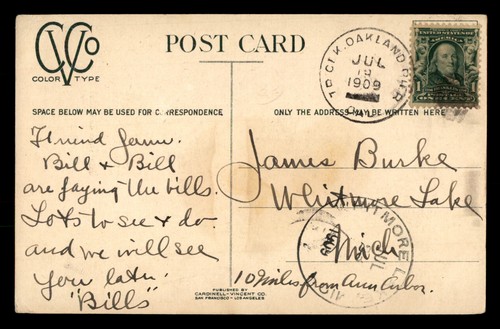 CVCo
COLOR TYPE
POST CARD
JUL
1909
CAL.
SPACE BELOW MAY BE USED FOR CORRESPONDENCE
ONLY THE ADDRESS MAY BE WRITTEN HERE
Bill & Bill
are paying the bills.
Lots to see & do.
and we will see
you later.
"Bills"
James Burke
Whitmore Lake
Mich
10 miles from Ann Arbor.
WHITMORE LAKE
JUL
1909
PUBLISHED BY
CARDINELL-VINCENT CO.
SAN FRANCISCO - LOS ANGELES